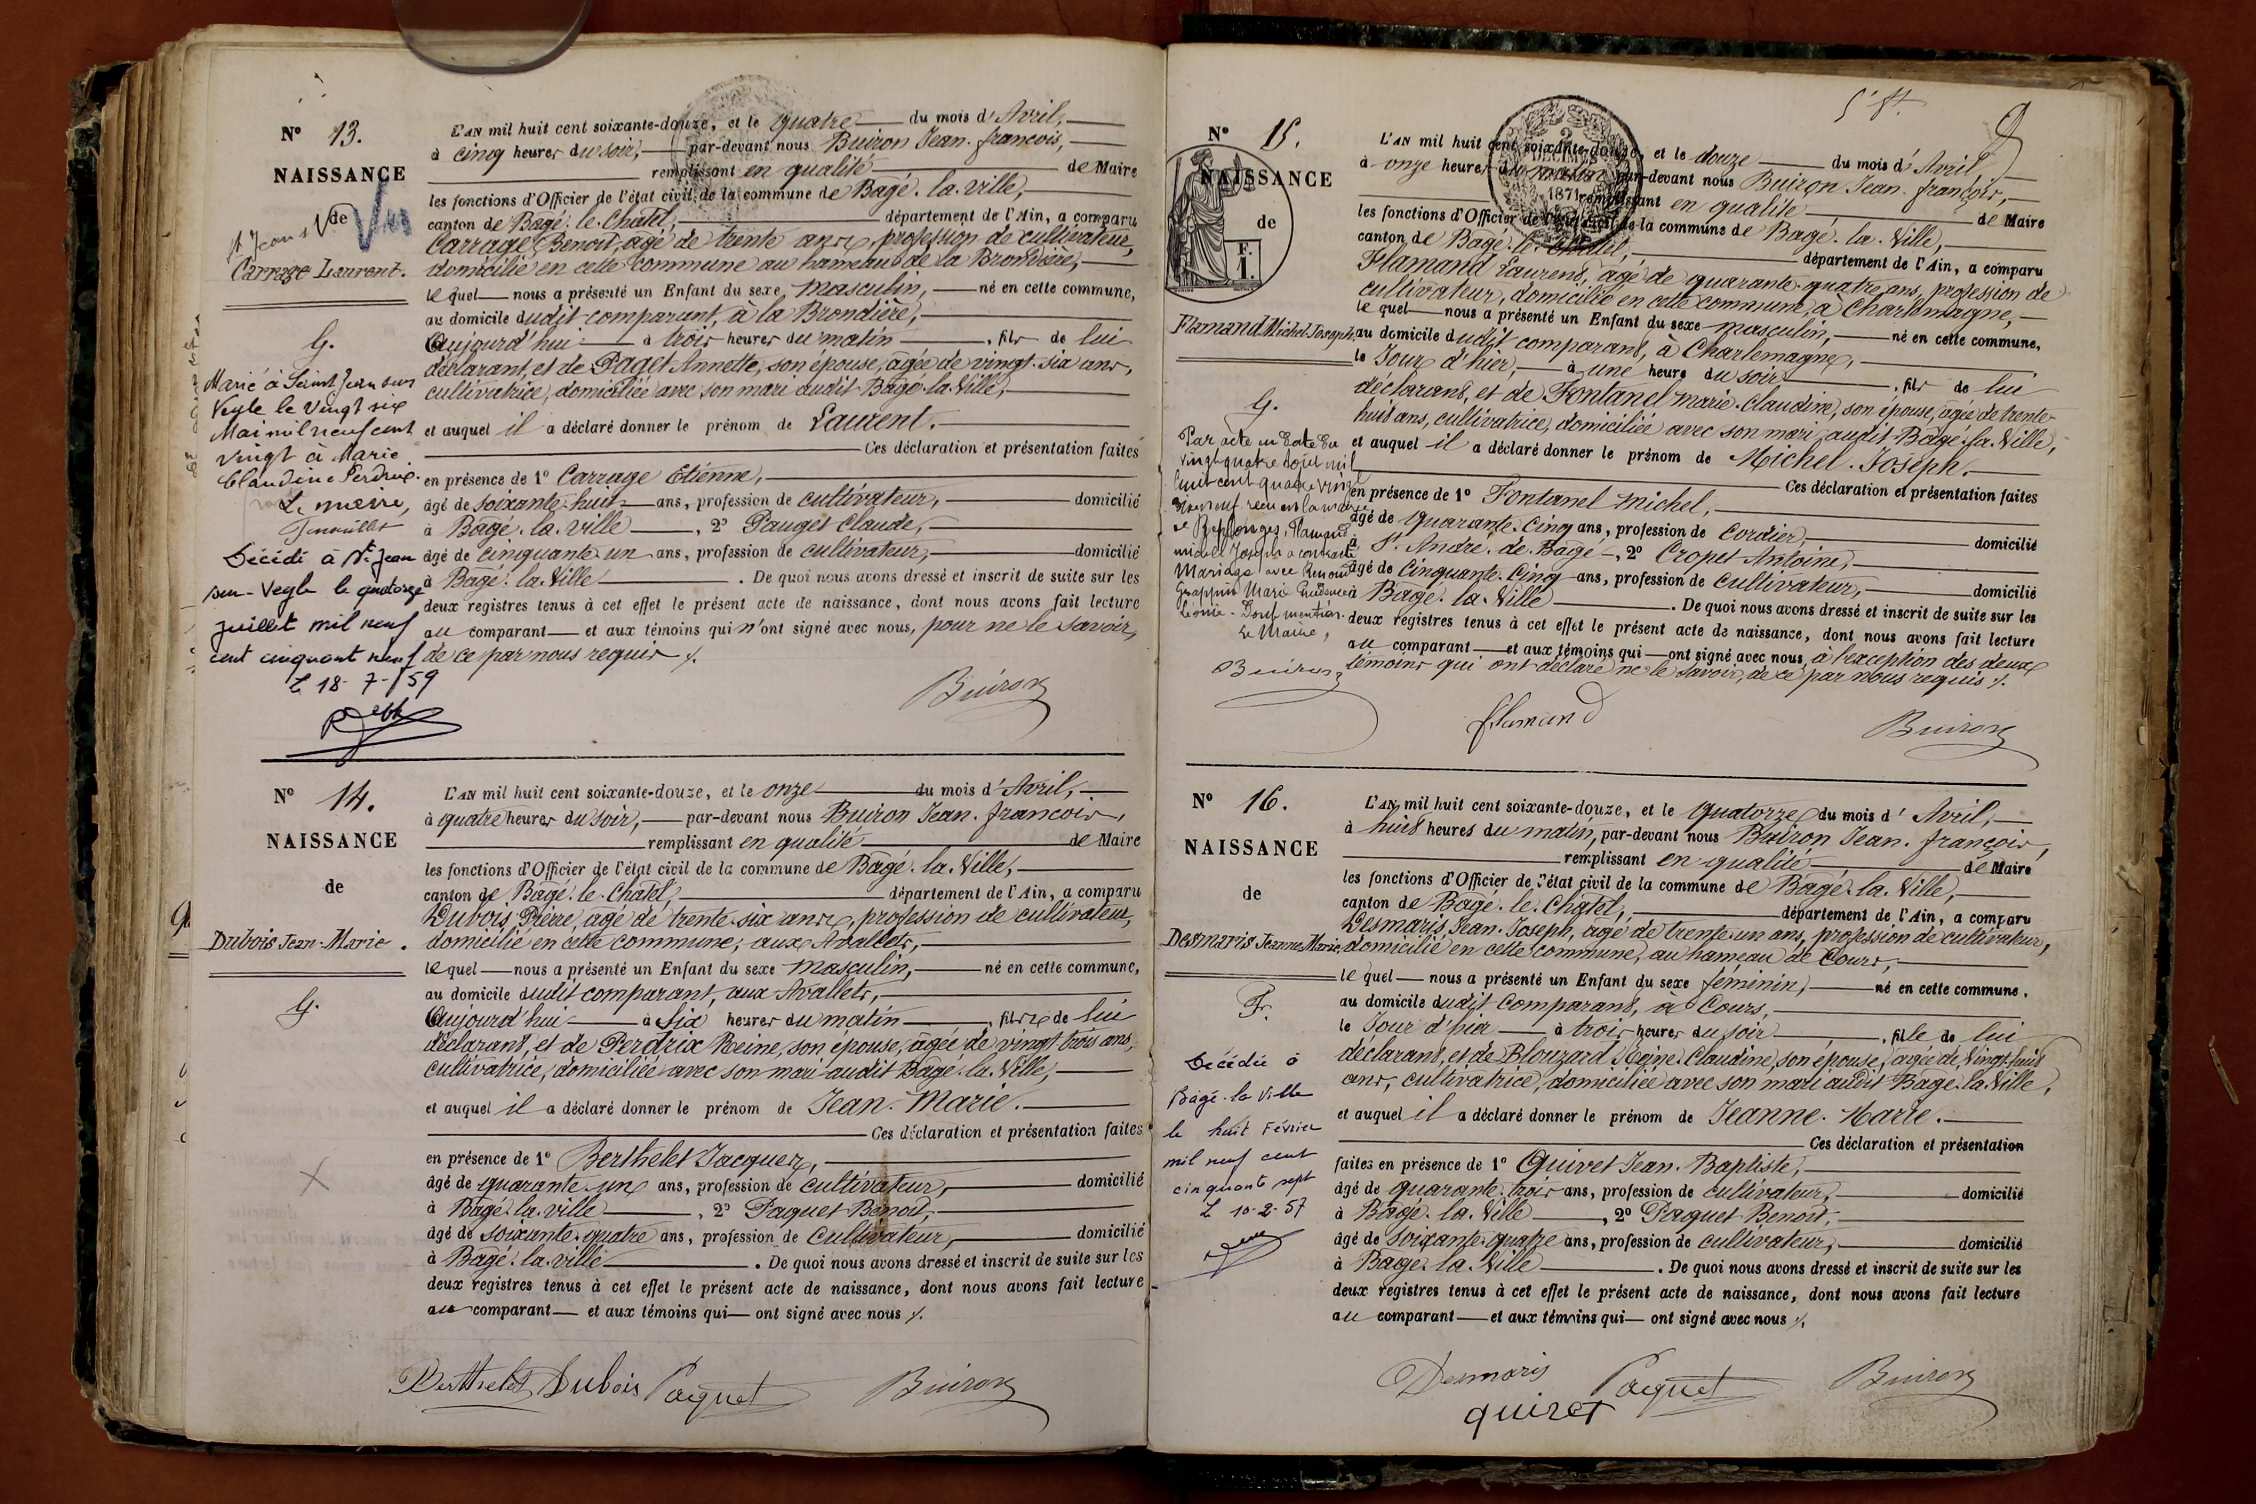 N° 13.
NAISSANCE
de
Carrage Laurent.
G.
Marié à Saint Jean sur
Veyle le vingt six
Mai mil neuf cent
vingt à Marie
Claudine Perdrix.
Le maire,
Décédé à St Jean
sur-Veyle le quatorze
juillet mil neuf
cent cinquant neuf
L 18-7-59
L'AN mil huit cent soixante-douze, et le quatre du mois d'Avril,
à cinq heures du soir, par-devant nous Buiron Jean-françois,
remplissant en qualité de Maire
les fonctions d'Officier de l'état civil de la commune de Bagé-la-ville,
canton de Bagé-le-Chatel, département de l'Ain, a comparu
Carrage Benoit, agé de trente ans, profession de cultivateur,
domicilié en cette commune au hameau de la Brondière,
lequel nous a présenté un Enfant du sexe masculin, né en cette commune,
au domicile dudit comparant, à la Brondière,
Aujourd'hui à trois heures du matin, fils de lui
déclarant, et de Paget Annette, son épouse, agée de vingt-six ans,
cultivatrice, domiciliée avec son mari audit Bagé-la-Ville,
et auquel il a déclaré donner le prénom de Laurent.
Ces déclaration et présentation faites
en présence de 1° Carrage Etienne,
âgé de soixante-huit ans, profession de cultivateur, domicilié
à Bagé-la-ville, 2° Pauget Claude,
âgé de cinquante-un ans, profession de cultivateur, domicilié
à Bagé-la-Ville. De quoi nous avons dressé et inscrit de suite sur les
deux registres tenus à cet effet le présent acte de naissance, dont nous avons fait lecture
au comparant et aux témoins qui n'ont signé avec nous, pour ne le savoir,
de ce par nous requis ./.
Buiron
N° 14.
NAISSANCE
de
Dubois Jean-Marie.
G.
L'AN mil huit cent soixante-douze, et le onze du mois d'Avril,
à quatre heures du soir, par-devant nous Buiron Jean-françois,
remplissant en qualité de Maire
les fonctions d'Officier de l'état civil de la commune de Bagé-la-Ville,
canton de Bagé-le-Chatel, département de l'Ain, a comparu
Dubois Pierre, agé de trente-six ans, profession de cultivateur,
domicilié en cette commune, aux Avallets,
lequel nous a présenté un Enfant du sexe masculin, né en cette commune,
au domicile dudit comparant, aux Avallets,
Aujourd'hui à six heures du matin, fils de lui
déclarant, et de Perdrix Reine, son épouse, agée de vingt trois ans,
cultivatrice, domiciliée avec son mari audit Bagé-la-Ville,
et auquel il a déclaré donner le prénom de Jean-Marie.
Ces déclaration et présentation faites
en présence de 1° Berthelet Jacques,
âgé de quarante-un ans, profession de cultivateur, domicilié
à Bagé-la-ville, 2° Paquet Benoit,
âgé de soixante-quatre ans, profession de cultivateur, domicilié
à Bagé-la-ville. De quoi nous avons dressé et inscrit de suite sur les
deux registres tenus à cet effet le présent acte de naissance, dont nous avons fait lecture
au comparant et aux témoins qui ont signé avec nous ./.
Berthelet Dubois Paquet Buiron
N° 15.
NAISSANCE
de
Flamand Michel-Joseph.
G.
Par acte en date du
vingt quatre août mil
huit cent quatre vingt
dix neuf reçu en la mairie
de Replonges, Flamand
Michel Joseph a contracté
Mariage avec Renoud
Grappin Marie Prudence
Léonie. Dont mention.
Le Maire,
Buiron
2
DECIMES
1871
F.
1.
L'AN mil huit cent soixante-douze, et le douze du mois d'Avril,
à onze heures du matin par-devant nous Buiron Jean-françois,
remplissant en qualité de Maire
les fonctions d'Officier de l'état civil de la commune de Bagé-la-Ville,
canton de Bagé-le-Chatel, département de l'Ain, a comparu
Flamand Laurent, agé de quarante-quatre ans, profession de
cultivateur, domicilié en cette commune, à Charlemagne,
lequel nous a présenté un Enfant du sexe masculin, né en cette commune,
au domicile dudit comparant, à Charlemagne,
le Jour d'hier, à une heure du soir, fils de lui
déclarant, et de Fontanel marie-Claudine, son épouse, agée de trente-
huit ans, cultivatrice, domiciliée avec son mari audit Bagé-la-Ville,
et auquel il a déclaré donner le prénom de Michel-Joseph.
Ces déclaration et présentation faites
en présence de 1° Fontanel Michel,
âgé de quarante-cinq ans, profession de Cordier, domicilié
à St-André-de-Bagé, 2° Cropet Antoine,
âgé de Cinquante-Cinq ans, profession de cultivateur, domicilié
à Bagé-la-Ville. De quoi nous avons dressé et inscrit de suite sur les
deux registres tenus à cet effet le présent acte de naissance, dont nous avons fait lecture
au comparant et aux témoins qui ont signé avec nous, à l'exception des deux
témoins qui ont déclaré ne le savoir, de ce par nous requis ./.
flamand Buiron
N° 16.
NAISSANCE
de
Desmaris Jeanne Marie.
Fr.
Décédée à
Bagé-la-Ville
le huit Février
mil neuf cent
cinquante sept
L 10-2-57
L'AN mil huit cent soixante-douze, et le quatorze du mois d'Avril,
à huit heures du matin, par-devant nous Buiron Jean-françois,
remplissant en qualité de Maire
les fonctions d'Officier de l'état civil de la commune de Bagé-la-Ville,
canton de Bagé-le-Chatel, département de l'Ain, a comparu
Desmaris Jean-Joseph, agé de trente-un ans, profession de cultivateur,
domicilié en cette commune, au hameau de Cours,
lequel nous a présenté un Enfant du sexe féminin, né en cette commune,
au domicile dudit comparant, à Cours,
le Jour d'hier à trois heures du soir, fille de lui
déclarant, et de Blouzard Reine Claudine, son épouse, agée de vingt-huit
ans, cultivatrice, domiciliée avec son mari audit Bagé-la-Ville,
et auquel il a déclaré donner le prénom de Jeanne-Marie.
Ces déclaration et présentation
faites en présence de 1° Quivet Jean-Baptiste,
âgé de quarante-trois ans, profession de cultivateur, domicilié
à Bagé-la-Ville, 2° Paquet Benoit,
âgé de soixante-quatre ans, profession de cultivateur, domicilié
à Bagé-la-Ville. De quoi nous avons dressé et inscrit de suite sur les
deux registres tenus à cet effet le présent acte de naissance, dont nous avons fait lecture
au comparant et aux témoins qui ont signé avec nous ./.
Desmaris Paquet Buiron
quivet